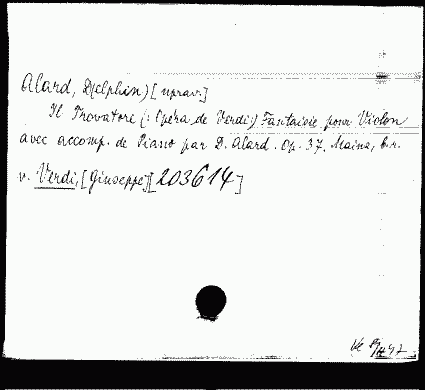 Alard, D[elphin) [uprav.]
Il Trovatore (: Opéra de Verdi:) Fantaisie pour Violon
avec accomp. de Piano par D. Alard. Op. 37. Mainz, b.r.
v. Verdi, [Giuseppe][203614]